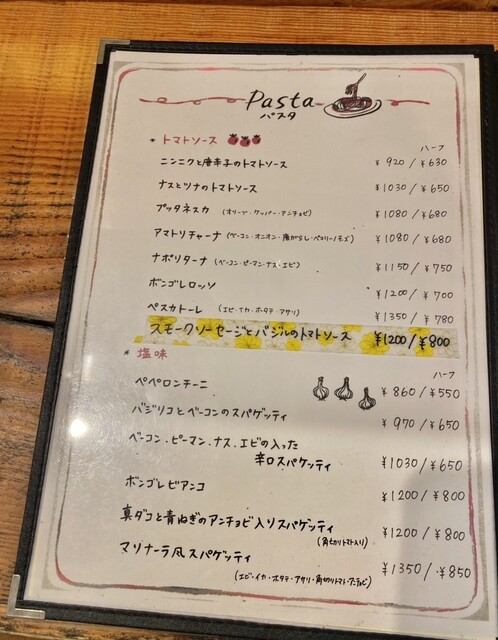 Pasta
パスタ
* トマトソース ハーフ
ニンニクと唐辛子のトマトソース ¥920/¥630
ナスとツナのトマトソース ¥1030/¥650
プッタネスカ (オリーブ・ケッパー・アンチョビ) ¥1080/¥680
アマトリチャーナ (ベーコン・オニオン・唐がらし・ペコリーノチーズ) ¥1080/¥680
ナポリターナ (ベーコン・ピーマン・ナス・エビ) ¥1150/¥750
ボンゴレロッソ ¥1200/¥700
ペスカトーレ (エビ・イカ・ホタテ・アサリ) ¥1350/¥780
スモークソーセージとバジルのトマトソース ¥1200/¥800
* 塩味 ハーフ
ペペロンチーニ ¥860/¥550
バジリコとベーコンのスパゲッティ ¥970/¥650
ベーコン、ピーマン、ナス、エビの入った
辛口スパゲッティ ¥1030/¥650
ボンゴレビアンコ ¥1200/¥800
真ダコと青ねぎのアンチョビ入りスパゲッティ ¥1200/¥800
(角切りトマト入り)
マリナーラ風スパゲッティ ¥1350/¥850
(エビ・イカ・ホタテ・アサリ・角切りトマト・アンチョビ)